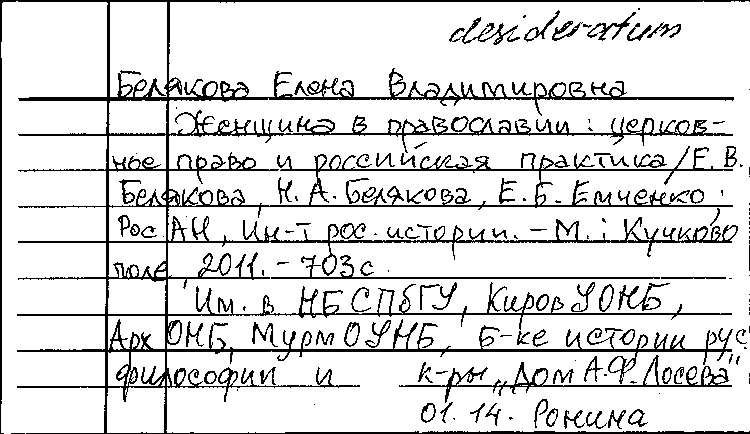 desideratum
Белякова Елена Владимировна
Женщина в православии : церков-
ное право и российская практика / Е. В.
Белякова, Н. А. Белякова, Е. Б. Емченко ;
Рос АН, Ин-т рос. истории. – М. : Кучково
поле, 2011. – 703 с.
Им. в НБ СПбГУ, Киров УОНБ,
Арх ОНБ, Мурм ОУНБ, Б-ке истории рус
философии и к-ры „Дом А.Ф. Лосева"
01.14. Ронина